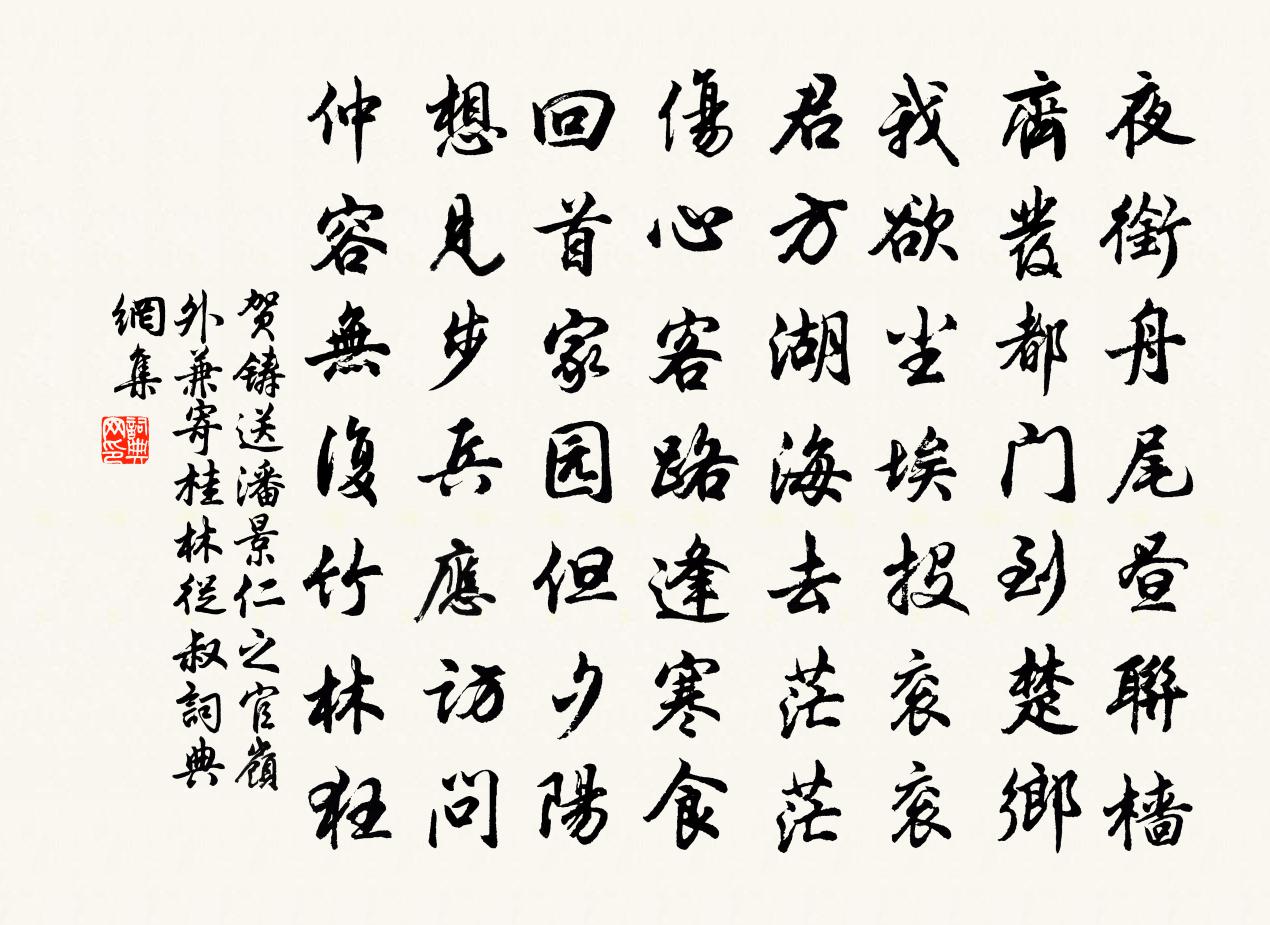 夜銜舟尾昼聯檣
齊發都门到楚鄉
我欲尘埃投衮衮
君方湖海去茫茫
傷心客路逢寒食
回首家园但夕陽
想見步兵應访问
仲容無復竹林狂
贺鑄送潘景仁之官嶺
外兼寄桂林從叔詞典
網集
詞典网印